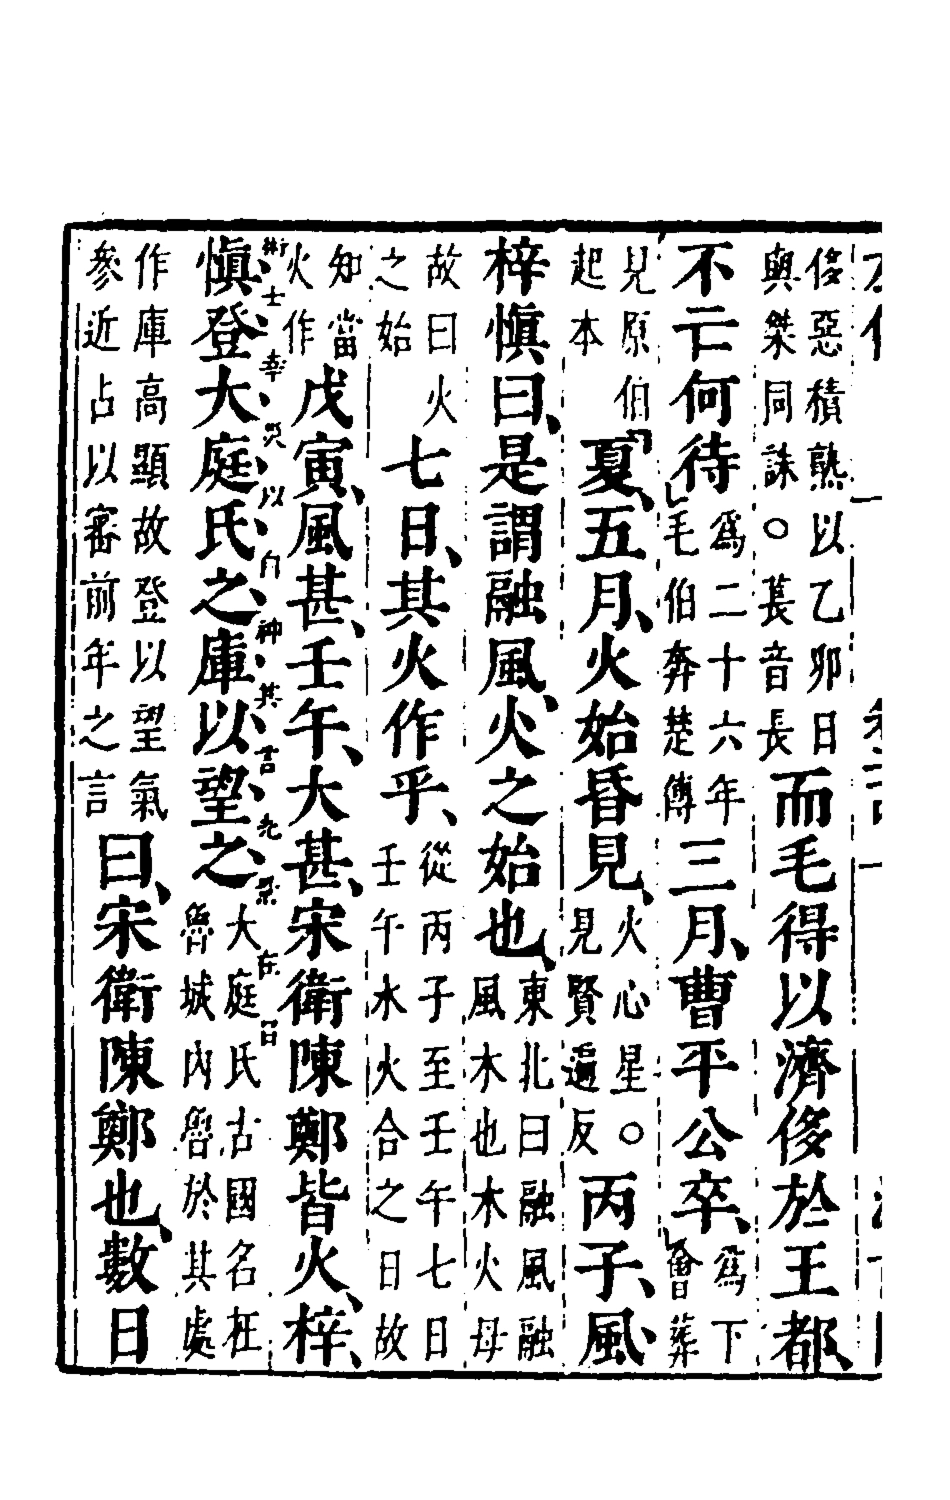 侈惡積熟以乙卯日與桀同誅○萇音長而毛得以濟侈於王都、
不亡何待爲二十六年毛伯奔楚傳三月、曹平公卒、爲下會葬
見原伯起本夏、五月、火始昏見、火心星○見賢遍反丙子、風、
梓愼曰、是謂融風、火之始也、東北曰融風融風木也木火母
故曰火之始七日、其火作乎、從丙子至壬午七日壬午水火合之日故
知當火作戊寅、風甚、壬午、大甚、宋衛陳鄭皆火、梓、
術士幸災以自神其言
愼登大庭氏之庫以望之大庭氏古國名在魯城內魯於其處
作庫高顯故登以望氣參近占以審前年之言曰、宋衛陳鄭也、數日